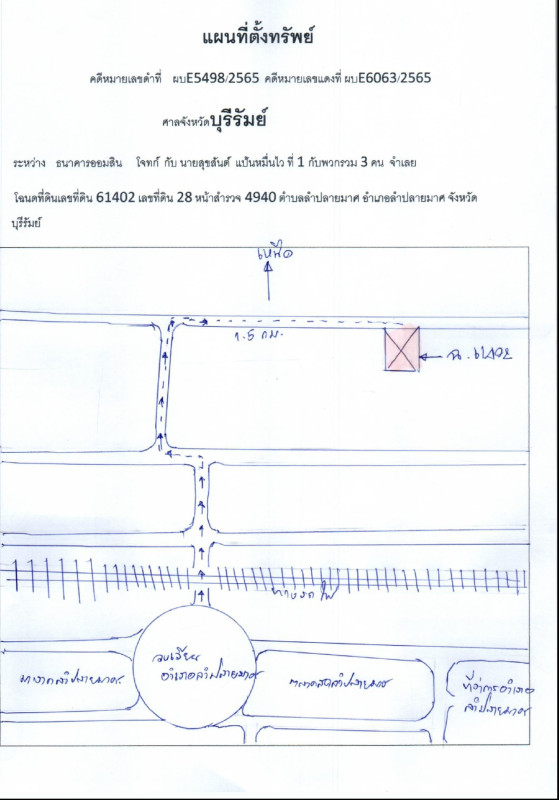 แผนที่ตั้งทรัพย์
คดีหมายเลขดำที่ ผบE5498/2565 คดีหมายเลขแดงที่ ผบE6063/2565
ศาลจังหวัดบุรีรัมย์
ระหว่าง ธนาคารออมสิน โจทก์ กับ นายสุขสันต์ แป้นหมื่นไว ที่ 1 กับพวกรวม 3 คน จำเลย
โฉนดที่ดินเลขที่ดิน 61402 เลขที่ดิน 28 หน้าสำรวจ 4940 ตำบลลำปลายมาศ อำเภอลำปลายมาศ จังหวัด
บุรีรัมย์
เหนือ
1.5 กม.
ทางรถไฟ
วงเวียน
อำเภอลำปลายมาศ
ตลาดสดลำปลายมาศ
ที่ว่าการอำเภอ
ลำปลายมาศ